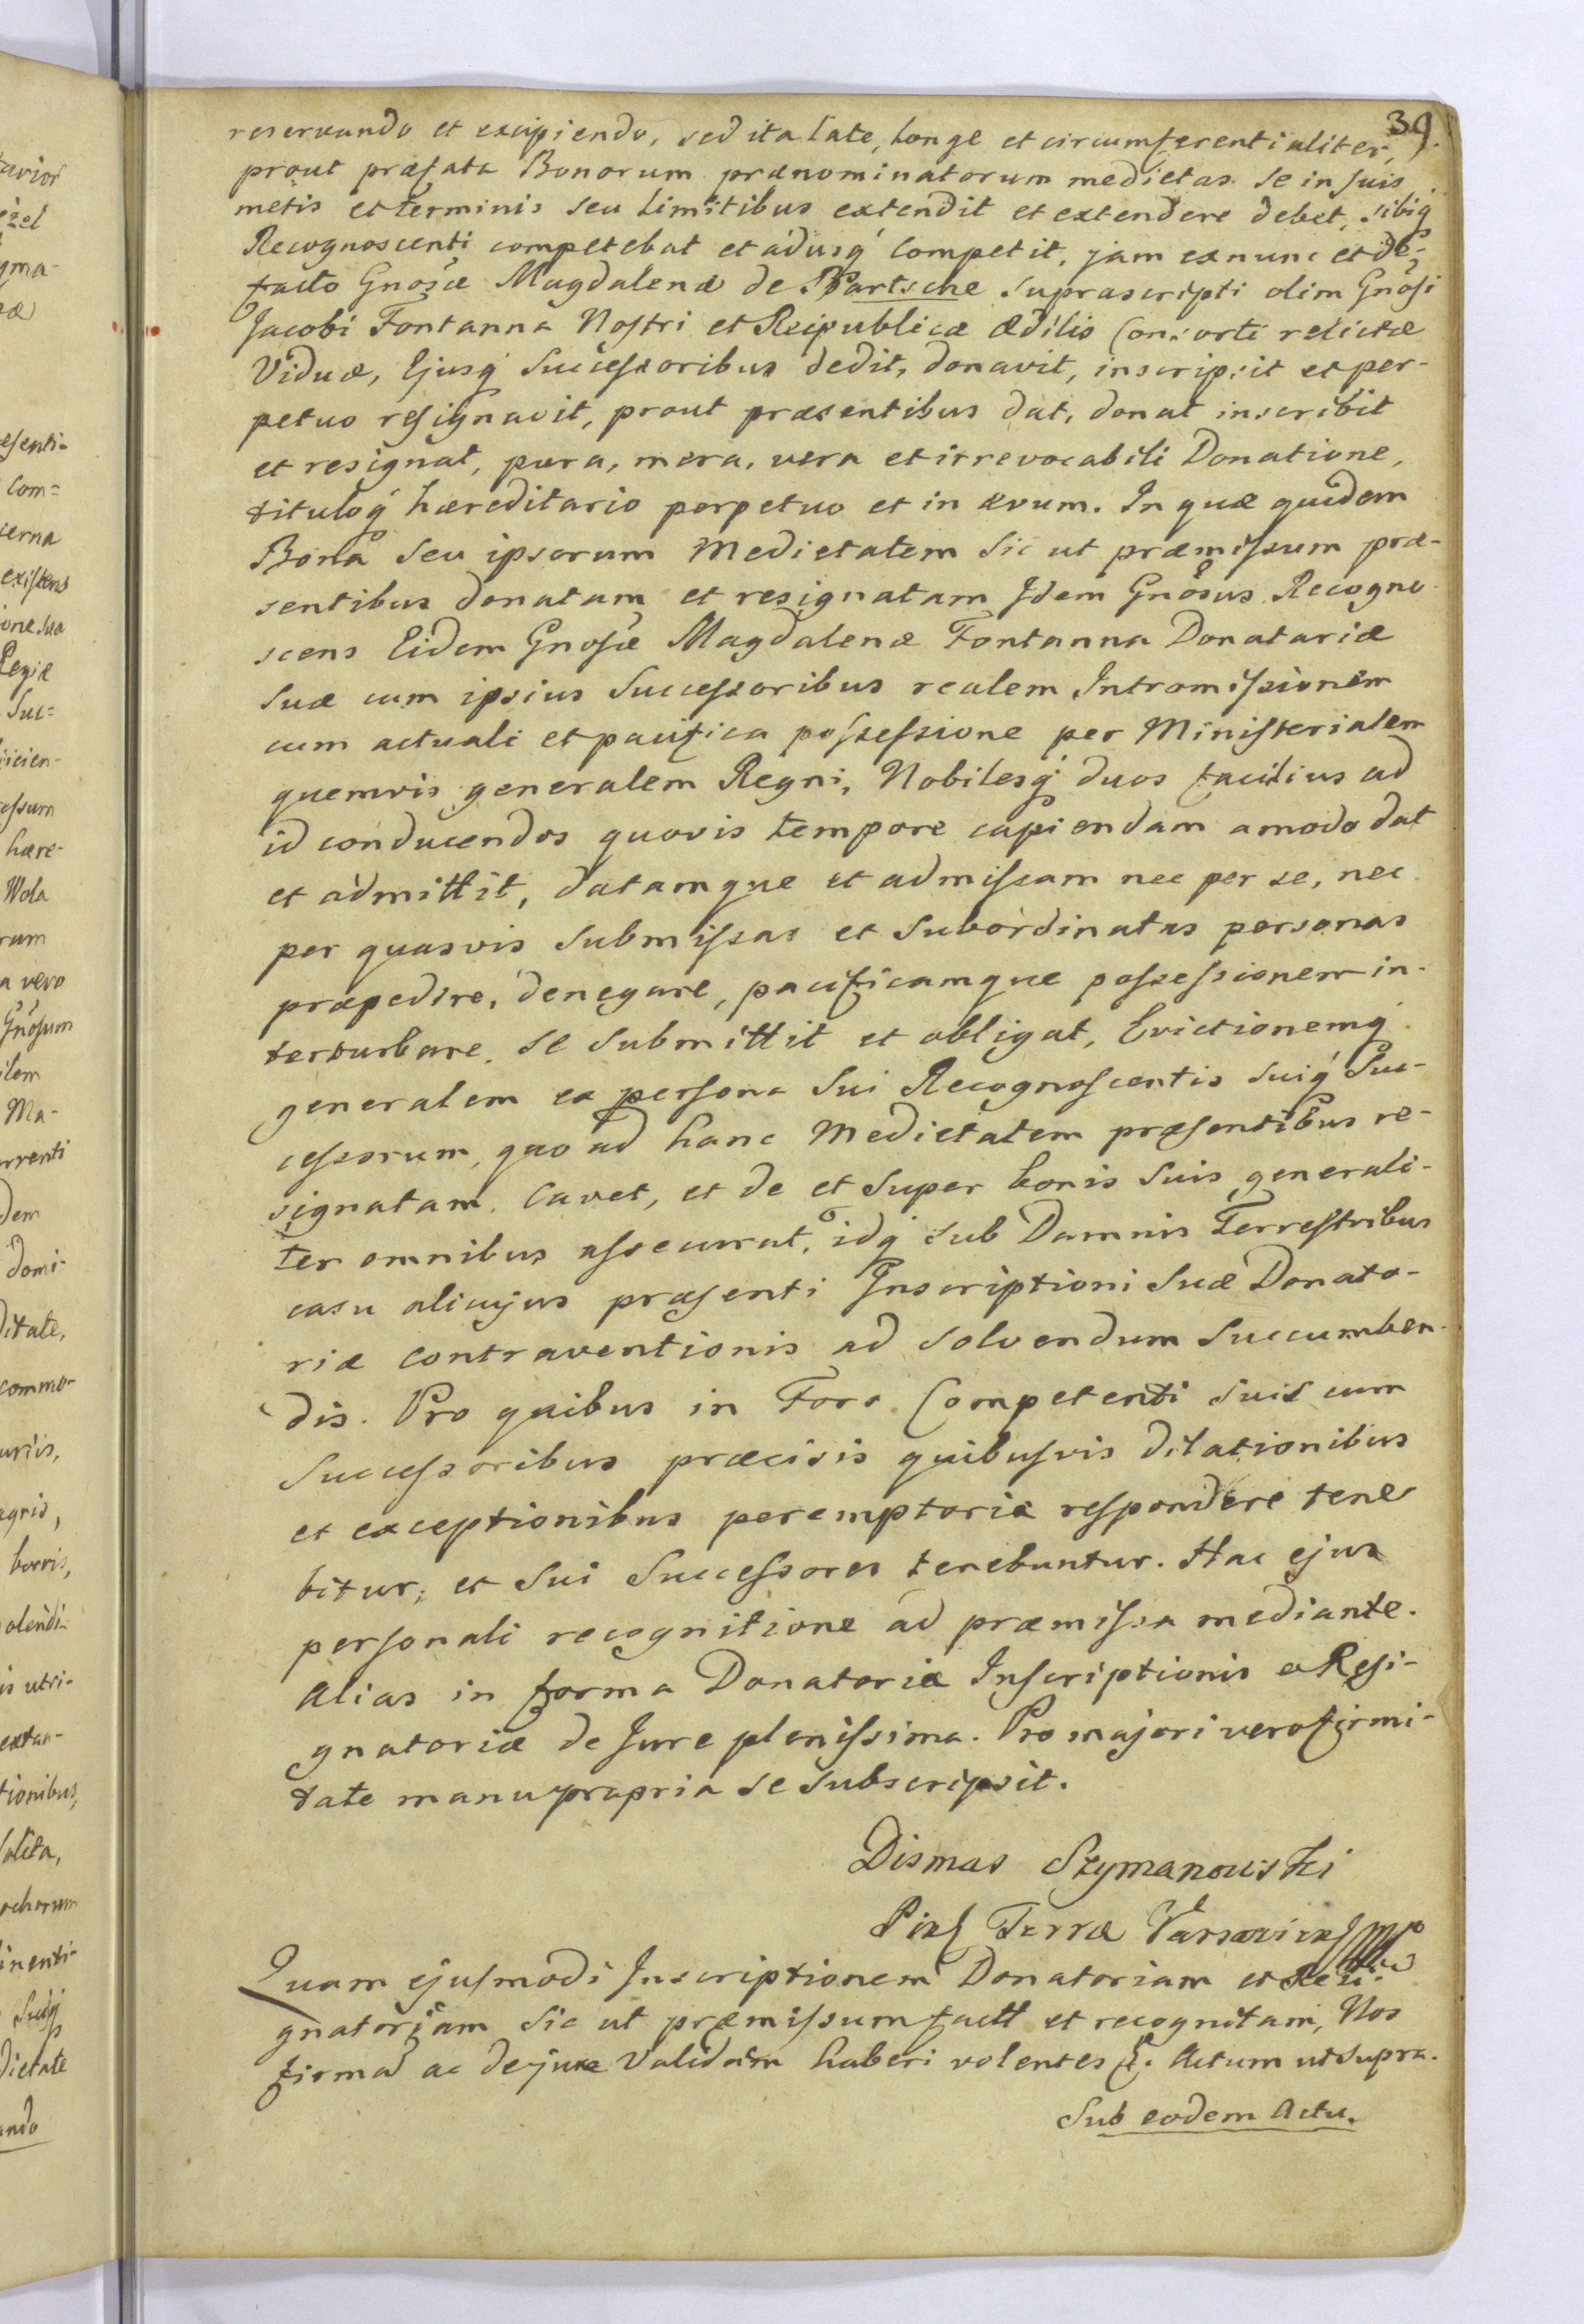 39.
reservando et excipiendo, sed ita late, longe et circumferentialiter,
prout præfata Bonorum prænominatorum medietas se in suis
metis et terminis seu limitibus extendit et extendere debet, sibiq́
Recognoscenti competebat et adusq́ competit, jam ex nunc et de-
facto Gnosæ Magdalenæ de Bartsche suprascripti olim Gnosi
Jacobi Fontanna Nostri et Reipublicæ Ædilis Consorti relictæ
Viduæ, Ejusq́ Successoribus dedit, donavit, inscripsit et per-
petuo resignavit, prout præsentibus dat, donat inscribit
et resignat, pura, mera, vera et irrevocabili Donatione,
tituloq́ hæreditario perpetuo et in ævum. In quæ quidem
Bona seu ipsorum Medietatem sic ut præmissum præ-
sentibus donatam et resignatam Idem Gnosus Recogno-
scens Eidem Gnosæ Magdalenæ Fontanna Donatariæ
suæ cum ipsius Successoribus realem Intromissionem
cum actuali et pacifica possessione per Ministerialem
quemvis generalem Regni, Nobilesq́ duos facilius ad
id conducendos quovis tempore capiendam amodo dat
et admittit, datamque et admissam nec per se, nec
per quasvis submissas et subordinatas personas
præpedire, denegare, pacificamque possessionem in-
terturbare, se submittit et obligat, Evictionemq́
generalem ex persona sui Recognoscentis suiq́ Suc-
cessorum, quo ad hanc Medietatem præsentibus re-
signatam, cavet, et de et super bonis suis generali-
ter omnibus assecurat, idq́ sub Damnis Terrestribus
casu alicujus præsenti Inscriptioni suæ Donato-
riæ contraventionis ad solvendum succumben-
dis. Pro quibus in Foro Competenti suis cum
Successoribus præcisis quibusvis dilationibus
et exceptionibus peremptorie respondere tene
bitur, et sui Successores tenebuntur. Hac ejus
personali recognitione ad præmissa mediante.
Alias in forma Donatoriæ Inscriptionis et Resi-
gnatoriæ de Jure plenissima. Pro majori vero firmi-
tate manu propria se subscripsit.
Dismas Szymanowski
Terræ
Quam ejusmodi Inscriptionem Donatoriam et Resi-
gnatoriam sic ut præmissum fact et recognitam, Nos
firmā ac de jure validam haberi volentes &. Actum ut supra.
Sub eodem Actu.